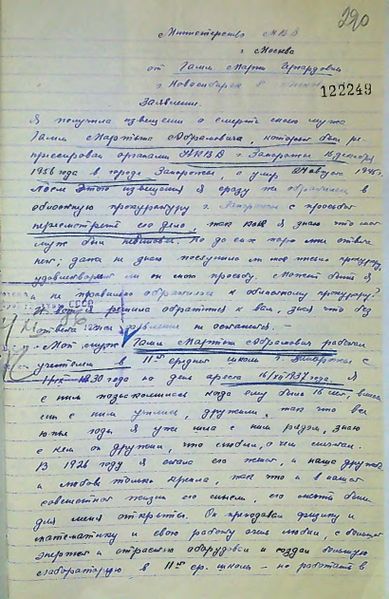 290
Министерство МВД
г Москва
от Гамм Марии Гергардовны
г Новосибирск 8
122249
Заявление.
Я получила извещение о смерти моего мужа
Гамм Мартына Абрамовича, который был ре-
прессирован органами НКВД г Запорожья 16 декабря
1936 года в городе Запорожье, а умер августа 1945 г.
После этого извещения я сразу же обратилась в
областную прокуратуру г Запорожья с просьбой
пересмотреть его дело, так как я знаю что мой
муж был невиновен. Но до сих пор мне ответа
нет; даже не знаю поступило ли мое письмо прокурору,
удовлетворят ли он мою просьбу. Может быть я
и не правильно обратилась к областному прокурору?
И вот я решила обратится к вам, зная что без
ответа мое заявление не останется. —
Мой муж Гамм Мартын Абрамович работал
учителем в 11ой средней школе г Запорожья с
1930 года по день ареста 16/XII 1937 года. Я
с ним познакомилась когда ему было 16 лет, вместе
с ним учились, дружили, так что все
юные годы я уже шла с ним рядом, знаю
с кем он дружил, что любил, о чем мечтал.
В 1926 году я стала его женой, и наша дружба
и любовь только крепла, так что и в нашей
совместной жизни его мысли, его мечты были
для меня открыты. Он преподавал физику и
математику и свою работу очень любил, с большой
энергией и страстью оборудовал и создал большую
лабораторию в 11ой ср. школе — но работать в